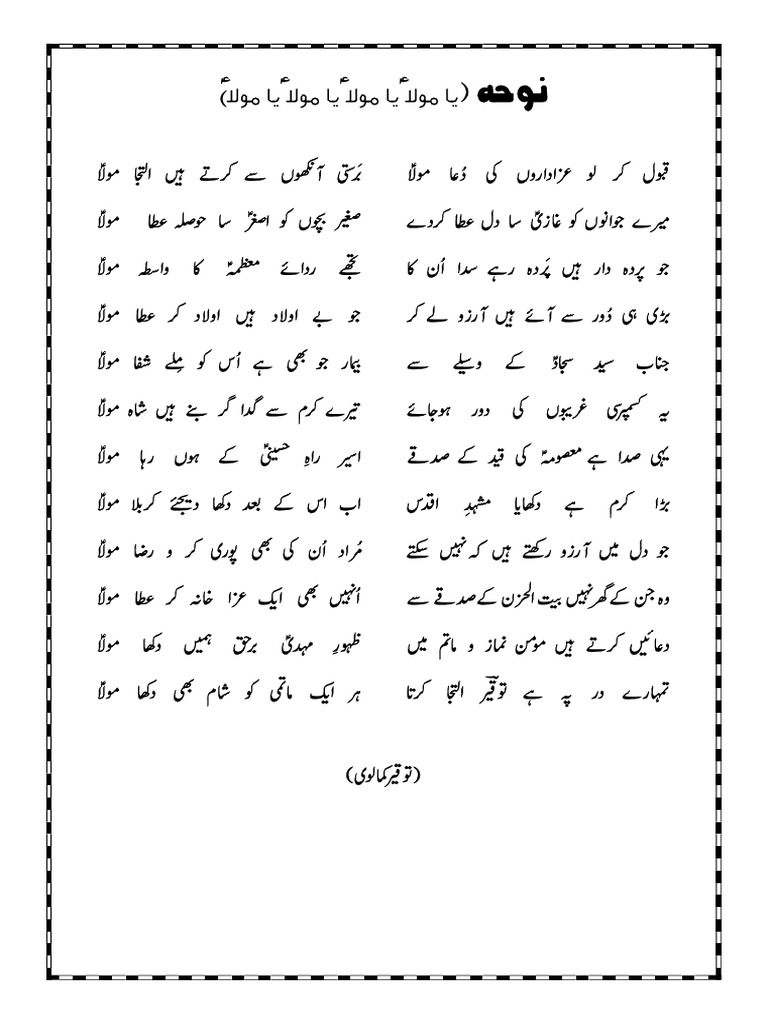 نوحہ (یا مولاؑ یا مولاؑ یا مولاؑ یا مولاؑ)
قبول کر لو عزاداروں کی دُعا مولاؑ برَستی آنکھوں سے کرتے ہیں التجا مولاؑ
میرے جوانوں کو غازیؑ سا دل عطا کردے صغیر بچوں کو اصغرؑ سا حوصلہ عطا مولاؑ
جو پردہ دار ہیں پَردہ رہے سدا اُن کا تجھے ردائے معظمہؑ کا واسطہ مولاؑ
بڑی ہی دُور سے آئے ہیں آرزو لے کر جو بے اولاد ہیں اولاد کر عطا مولاؑ
جناب سید سجادؑ کے وسیلے سے بیمار جو بھی ہے اُس کو مِلے شفا مولاؑ
یہ کسمپرسی غریبوں کی دور ہوجائے تیرے کرم سے گدا گر بنے ہیں شاہ مولاؑ
یہی صدا ہے معصومہؑ کی قید کے صدقے اسیر راہِ حسینیؑ کے ہوں رہا مولاؑ
بڑا کرم ہے دکھایا مشہدِ اقدس اب اس کے بعد دکھا دیجئے کربلا مولاؑ
جو دل میں آرزو رکھتے ہیں کہ نہیں سکتے مُراد اُن کی بھی پوری کر و رضا مولاؑ
وہ جن کے گھر نہیں بیت الحزن کے صدقے سے اُنہیں بھی ایک عزا خانہ کر عطا مولاؑ
دعائیں کرتے ہیں مؤمن نماز و ماتم میں ظہورِ مہدیؑ برحق ہمیں دکھا مولاؑ
تمہارے در پہ ہے توقیرؔ التجا کرتا ہر ایک ماتمی کو شام بھی دکھا مولاؑ
(توقیر کمالوی)